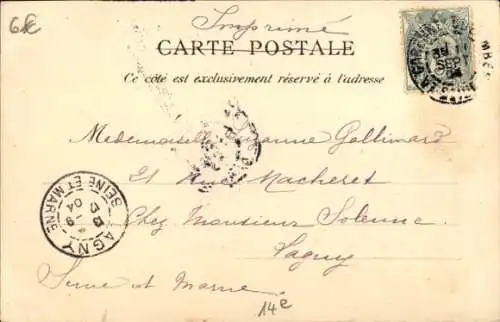 6€
Imprimé
CARTE POSTALE
Ce côté est exclusivement réservé à l'adresse
SEP
04
Mademoiselle Suzanne Gallimard
21 Rue Macheret
Chez Monsieur Solenne
Lagny
Seine et Marne
LAGNY
SEINE ET MARNE
04
14e